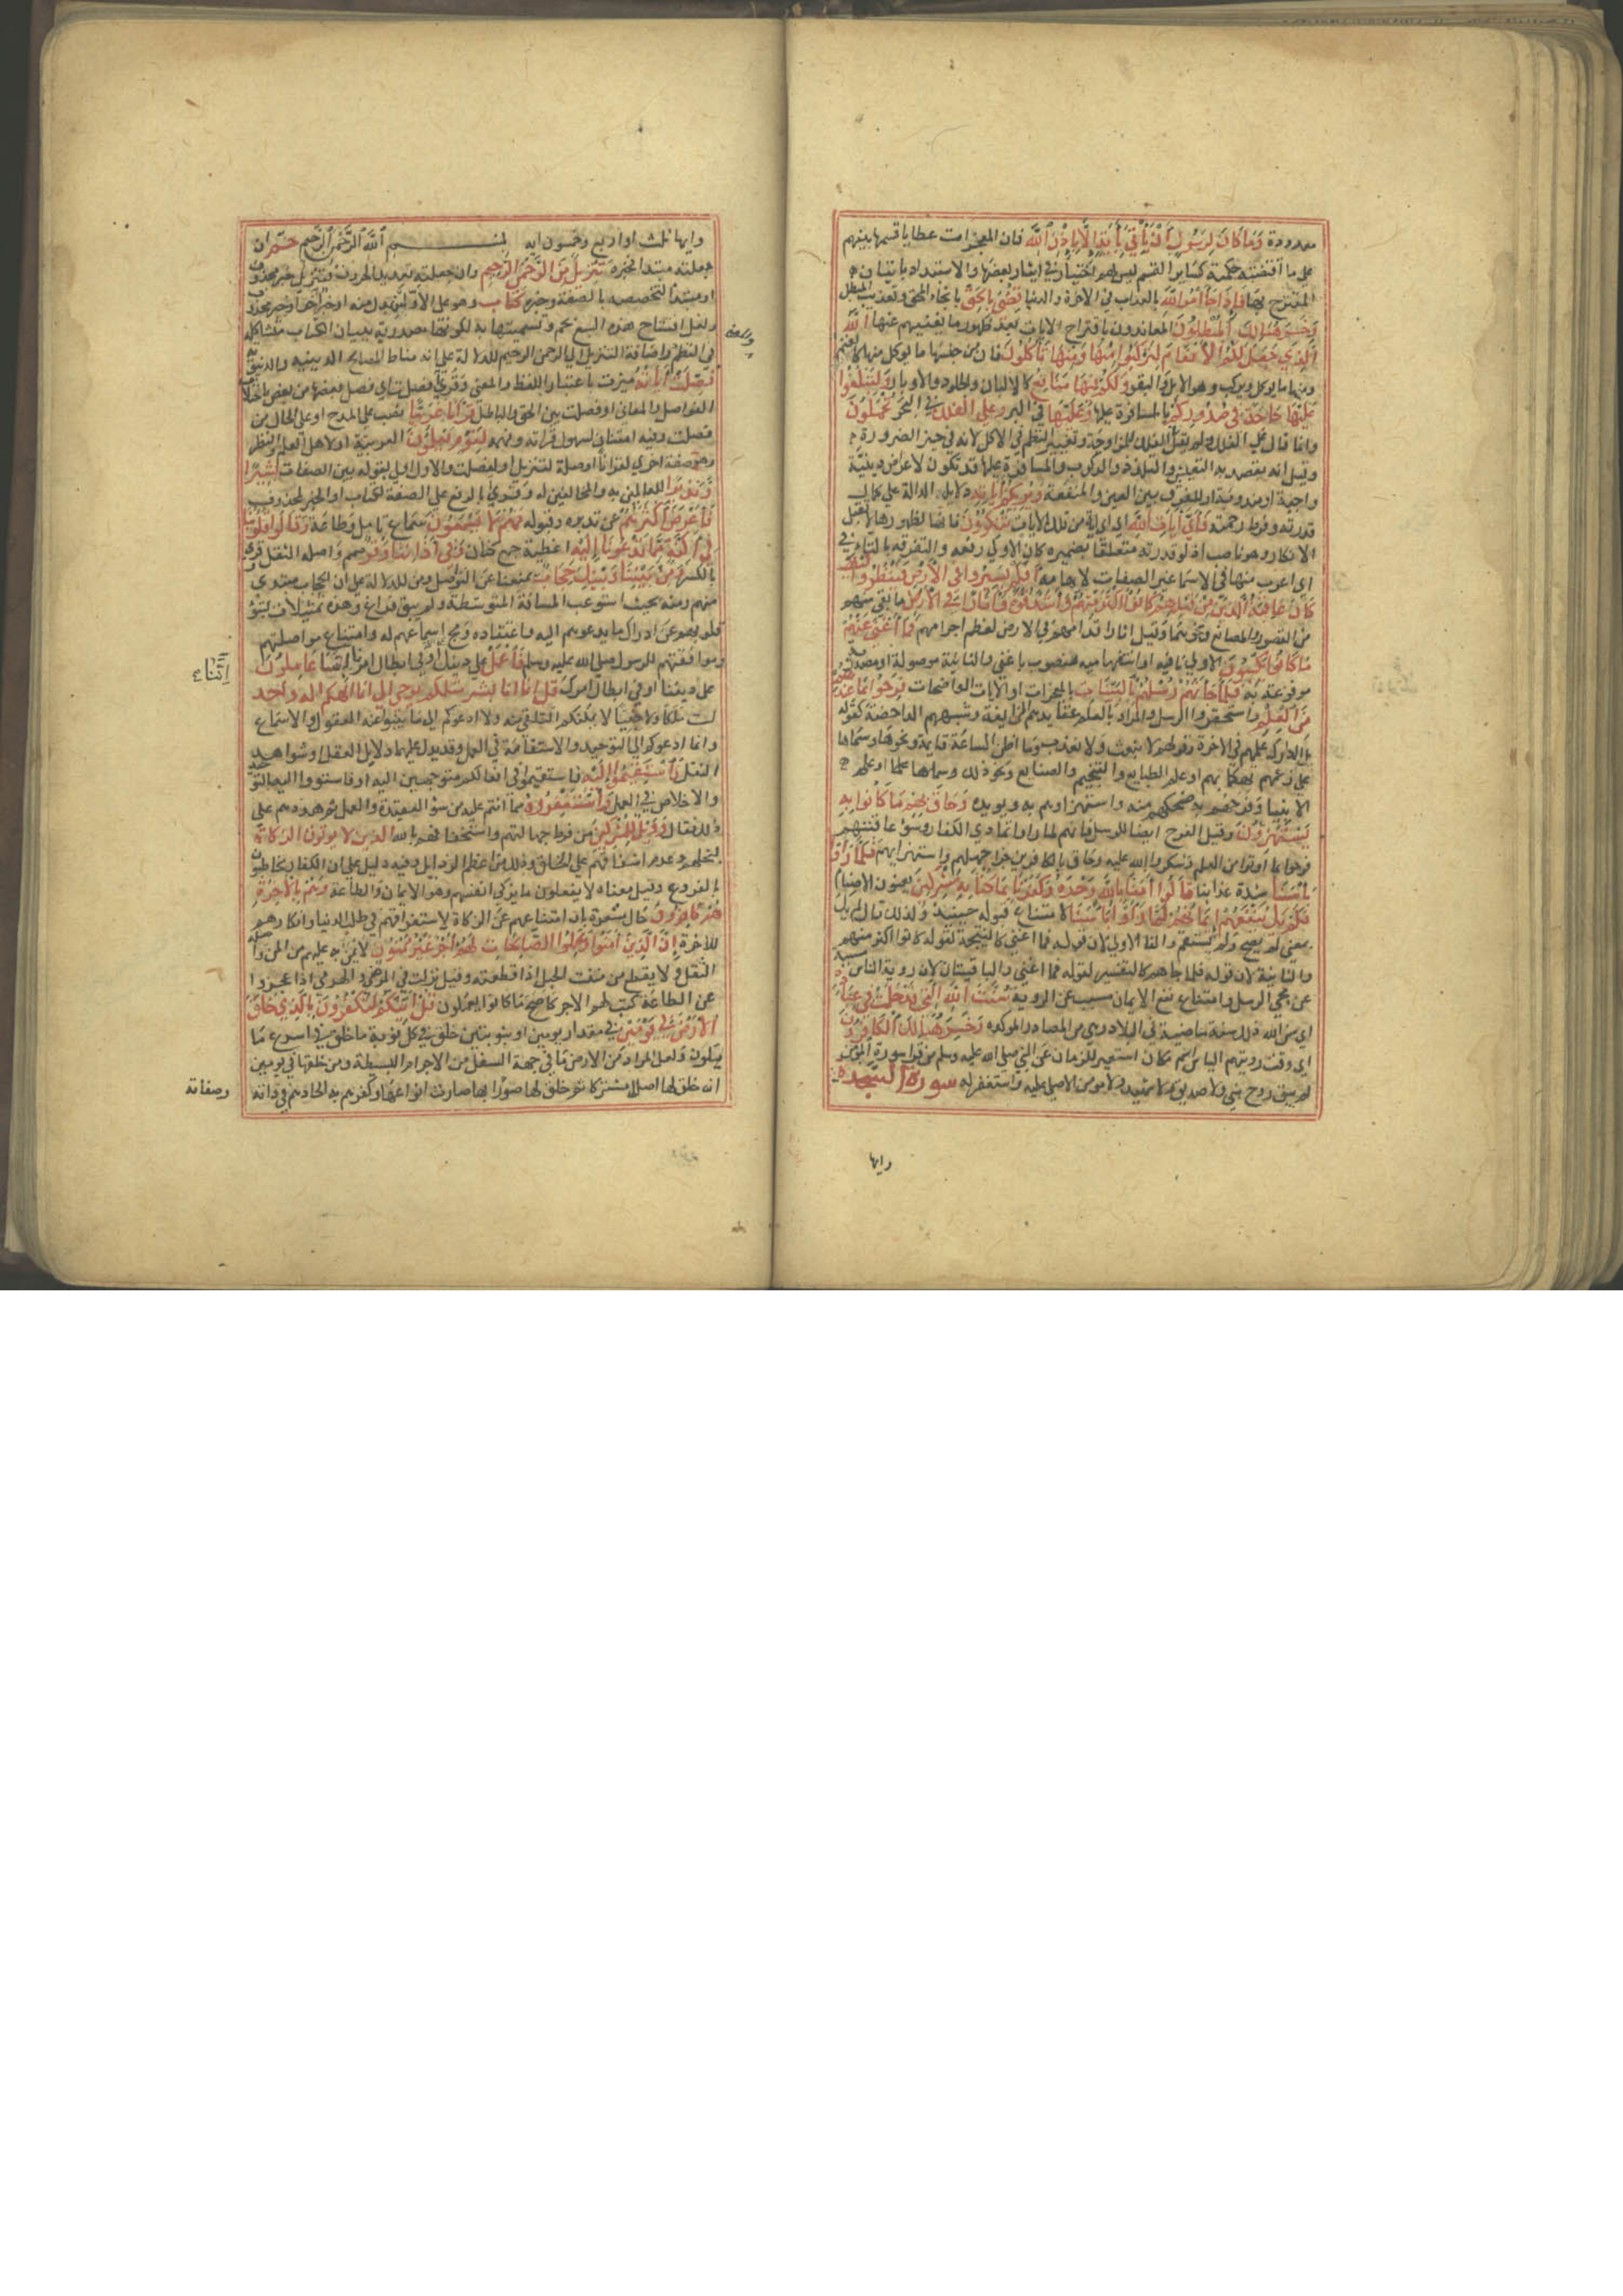 معدودة وَمَا كَانَ لِرَسُولٍ أَنْ يَأْتِيَ بِآيَةٍ إِلَّا بِإِذْنِ ٱللَّهِ فان المعجزات عطايا قسمها بينهم
على ما اقتضته حكمته كساير القسم ليس لهم اختيار في ايثار بعضها والاستبداد باتيان
المقترح بها فَإِذَا جَآءَ أَمْرُ ٱللَّهِ بالعذاب في الاخرة والدنيا قُضِيَ بِالْحَقِّ بانجاء المحق وتعذيب المبطل
وَخَسِرَ هُنَالِكَ ٱلْمُبْطِلُونَ المعاندون باقتراح الايات بعد ظهور ما يغنيهم عنها ٱللَّهُ
ٱلَّذِي جَعَلَ لَكُمُ ٱلْأَنْعَامَ لِتَرْكَبُوا مِنْهَا وَمِنْهَا تَأْكُلُونَ فان من جنسها ما يوكل منها كالغنم
ومنها ما يوكل ويركب وهو الابل والبقر وَلَكُمْ فِيهَا مَنَافِعُ كالالبان والجلود والاوبار وَلِتَبْلُغُوا
عَلَيْهَا حَاجَةً فِي صُدُورِكُمْ بالمسافرة عليها وَعَلَيْهَا في البر وَعَلَى ٱلْفُلْكِ في البحر تُحْمَلُونَ
وانما قال على الفلك ولم يقل في الفلك للمزاوجة وتغيير النظم في الاكل لانه في حيز الضرورة
وقيل انه يقصد به التعيش والتلذذ والركوب والمسافرة عليها قد تكون لاغراض دينية
واجبة او مندوبة او للفرق بين العين والمنفعة وَيُرِيكُمْ آيَاتِهِ دلايله الدالة على كمال
قدرته وفرط رحمته فَأَيَّ آيَاتِ ٱللَّهِ اي اي اية من تلك الايات تُنْكِرُونَ فانها لظهورها لا تقبل
الانكار وهو ناصب اي اذ لو قدرته متعلقا بضميره كان الاولى رفعه والتفرقة بالتاء في
اي اغرب منها في الاسماء غير الصفات لابهامه أَفَلَمْ يَسِيرُوا فِي ٱلْأَرْضِ فَيَنْظُرُوا كَيْفَ
كَانَ عَاقِبَةُ ٱلَّذِينَ مِنْ قَبْلِهِمْ كَانُوا أَكْثَرَ مِنْهُمْ وَأَشَدَّ قُوَّةً وَآثَارًا فِي ٱلْأَرْضِ ما بقي منهم
من القصور والمصانع ونحوهما وقيل اثار اقدامهم في الارض لعظم اجرامهم فَمَا أَغْنَى عَنْهُمْ
مَا كَانُوا يَكْسِبُونَ الاولى نافية او استفهامية منصوب باغنى والثانية موصولة او مصدرية
مرفوعة به فَلَمَّا جَاءَتْهُمْ رُسُلُهُمْ بِٱلْبَيِّنَاتِ بالمعجزات او الايات الواضحات فَرِحُوا بِمَا عِنْدَهُمْ
مِنَ ٱلْعِلْمِ واستحقروا الرسل والمراد بالعلم عقايدهم الزايغة وشبههم الداحضة كقوله
بل ادارك علمهم في الاخرة وقولهم لا نبعث ولا نعذب وما اظن الساعة قايمة ونحوها وسماها
على زعمهم تهكما بهم او علم الطبايع والتنجيم والصنايع ونحو ذلك وسماها علما او علم
الانبيا وفرحهم به ضحكهم منه واستهزاوهم به ويويده وَحَاقَ بِهِمْ مَا كَانُوا بِهِ
يَسْتَهْزِئُونَ وقيل الفرح ايضا للرسل فانهم لما راوا تمادي الكفار وسوء عاقبتهم
فرحوا بما اوتوا من العلم وشكروا الله عليه وحاق بالكافرين جزا جهلهم واستهزايهم فَلَمَّا رَأَوْا
بَأْسَنَا شدة عذابنا قَالُوا آمَنَّا بِٱللَّهِ وَحْدَهُ وَكَفَرْنَا بِمَا كُنَّا بِهِ مُشْرِكِينَ يعنون الاصنام
فَلَمْ يَكُ يَنْفَعُهُمْ إِيمَانُهُمْ لَمَّا رَأَوْا بَأْسَنَا لامتناع قبوله حينيذ ولذلك قال لم يك
بمعنى لم يصح ولم يستقم والفا الاولى لان قوله فما اغنى كالنتيجة لقوله كانوا اكثر منهم
والثانية لان قوله فلما جاهم كالتفسير لقوله فما اغنى والباقيتان لان روية الباس مسببة
عن مجي الرسل وامتناع نفع الايمان مسبب عن الروية سُنَّتَ ٱللَّهِ ٱلَّتِي قَدْ خَلَتْ فِي عِبَادِهِ
اي سن الله ذلك سنة ماضية في العباد وهي من المصادر الموكدة وَخَسِرَ هُنَالِكَ ٱلْكَافِرُونَ
اي وقت رويتهم الباس اسم مكان استعير للزمان عن النبي صلى الله عليه وسلم من قرا سورة المؤمن
لم يبق روح نبي ولا صديق ولا شهيد ولا مومن الا صلى عليه واستغفر له سورة السجدة
وايها
وايها ثلث او اربع وخمسون اية بســـم ٱللَّهِ ٱلرَّحْمَٰنِ ٱلرَّحِيمِ حٓمٓ ان
جعلته مبتدا فخبره تَنْزِيلٌ مِنَ ٱلرَّحْمَٰنِ ٱلرَّحِيمِ وان جعلته تعديدا للحروف فتنزيل خبر محذوف
او مبتدا لتخصصه بالصفة وخبره كِتَابٌ وهو على الاولين بدل منه او خبر اخر او خبر محذوف
ولعل افتتاح هذه السبع بحم وتسميتها به لكونها مصدرة ببيان الكتاب متشاكلة
في النظم واضافة التنزيل الى الرحمن الرحيم للدلالة على انه مناط المصالح الدينية والدنيوية
فُصِّلَتْ آيَاتُهُ ميزت باعتبار اللفظ والمعنى وقرئ فصلت اي فصل بعضها من بعض باختلاف
الفواصل والمعاني او فصلت بين الحق والباطل قُرْآنًا عَرَبِيًّا نصب على المدح او على الحال من
فصلت وفيه امتنان بسهولة قراته وفهمه لِقَوْمٍ يَعْلَمُونَ العربية او لاهل العلم والنظر
وهو صفة اخرى لقرانا او صلة لتنزيل او لفصلت والاول اولى لوقوعه بين الصفات بَشِيرًا
وَنَذِيرًا للعاملين به والمخالفين له وقرئ بالرفع على الصفة لكتاب او الخبر لمحذوف
فَأَعْرَضَ أَكْثَرُهُمْ عن تدبره وقبوله فَهُمْ لَا يَسْمَعُونَ سماع تامل وطاعة وَقَالُوا قُلُوبُنَا
فِي أَكِنَّةٍ مِمَّا تَدْعُونَا إِلَيْهِ اغطية جمع كنان وَفِي آذَانِنَا وَقْرٌ صمم واصله الثقل وقرئ
بالكسر وَمِنْ بَيْنِنَا وَبَيْنِكَ حِجَابٌ يمنعنا عن التوصل ومن للدلالة على ان الحجاب مبتدئ
منهم ومنه بحيث استوعب المسافة المتوسطة ولم يبق فراغ وهذه تمثيلات لنبو
قلوبهم عن ادراك ما يدعوهم اليه واعتقاده ومج اسماعهم له وامتناع مواصلتهم
وموافقتهم للرسول صلى الله عليه وسلم فَٱعْمَلْ على دينك او في ابطال امرنا إِنَّنَا عَامِلُونَ
على ديننا او في ابطال امرك قل انما انا بشر مثلكم يوحى الي انما الهكم اله واحد
لست ملكا ولا جنيا لا يمكنكم التلقي منه ولا ادعوكم الى ما ينبو عنه العقول والاسماع
وانما ادعوكم الى التوحيد والاستقامة في العمل وقد يدل عليهما دلايل العقل وشواهد
النقل فَٱسْتَقِيمُوا إِلَيْهِ فاستقيموا في افعالكم متوجهين اليه او فاستووا اليه بالتوحيد
والاخلاص في العمل وَٱسْتَغْفِرُوهُ مما انتم عليه من سوء العقيدة والعمل ثم هددهم على
ذلك فقال وَوَيْلٌ لِلْمُشْرِكِينَ من فرط جهالتهم واستخفافهم بالله الذين لا يوتون الزكاة
لبخلهم وعدم اشفاقهم على الخلق وذلك من اعظم الرذايل وفيه دليل على ان الكفار مخاطبون
بالفروع وقيل معناه لا يفعلون ما يزكي انفسهم وهو الايمان والطاعة وَهُمْ بِٱلْآخِرَةِ
هُمْ كَافِرُونَ حال مشعرة بان امتناعهم عن الزكاة لاستغراقهم في طلب الدنيا وانكارهم
للاخرة إِنَّ ٱلَّذِينَ آمَنُوا وَعَمِلُوا ٱلصَّالِحَاتِ لَهُمْ أَجْرٌ غَيْرُ مَمْنُونٍ لا يمن به عليهم من المن واصله
الثقل او لا يقطع من مننت الحبل اذا قطعته وقيل نزلت في المرضى والهرمى اذا عجزوا
عن الطاعة كتب لهم الاجر كاصح ما كانوا يعملون قُلْ أَئِنَّكُمْ لَتَكْفُرُونَ بِٱلَّذِي خَلَقَ
ٱلْأَرْضَ فِي يَوْمَيْنِ في مقدار يومين او بنوبتين خلق في كل نوبة ما خلق في اسرع ما
يكون ولعل المراد من الارض ما في جهة السفل من الاجرام البسيطة ومن خلقها في يومين
انه خلق لها اصلا مشتركا ثم خلق لها صورا بها صارت انواعا وكفرهم به الحادهم في ذاته
إِنَّنَا
وصفاته